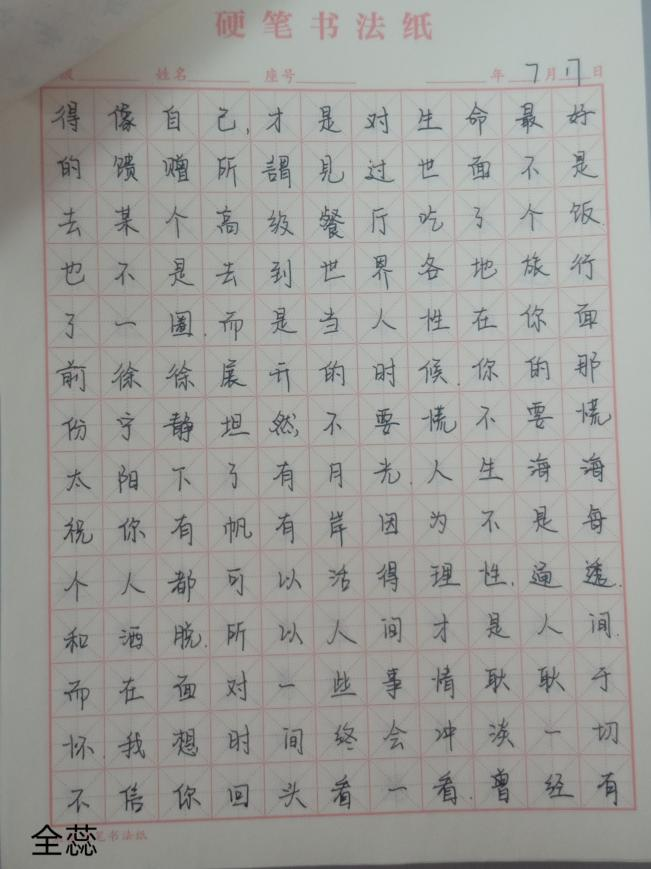 硬笔书法纸
级 姓名 座号 年 7 月 17 日
得像自己,才是对生命最好
的馈赠所謂見过世面不是
去某个高级餐厅吃了个饭.
也不是去到世界各地旅行
了一圈.而是当人性在你面
前徐徐展开的时候.你的那
份宁静坦然,不要慌不要慌
太阳下了有月光.人生海海
祝你有帆有岸因为不是每
个人都可以活得理性.通透.
和洒脱.所以人间才是人间.
而在面对一些事情耿耿于
怀.我想时间终会冲淡一切
不信你回头看一看.曾经有
笔书法纸
全蕊